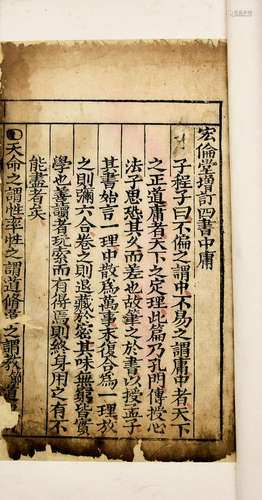 宏倫堂增訂四書中庸
子程子曰不偏之謂中不易之謂庸中者天下
之正道庸者天下之定理此篇乃孔門傳授心
法子思恐其久而差也故筆之於書以授孟子
其書始言一理中散爲萬事末復合爲一理放
之則瀰六合卷之則退藏於密其味無窮皆實
學也善讀者玩索而有得焉則終身用之有不
能盡者矣
天命之謂性率性之謂道修道之謂教